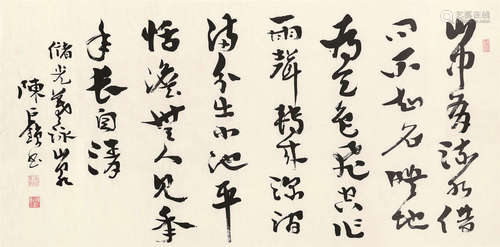 山中有流水借
問不知名映地
為天色飛空作
雨聲轉來深澗
滿分出小池平
恬澹無人見年
年長自清
儲光羲詠山泉
陳巨鎖書